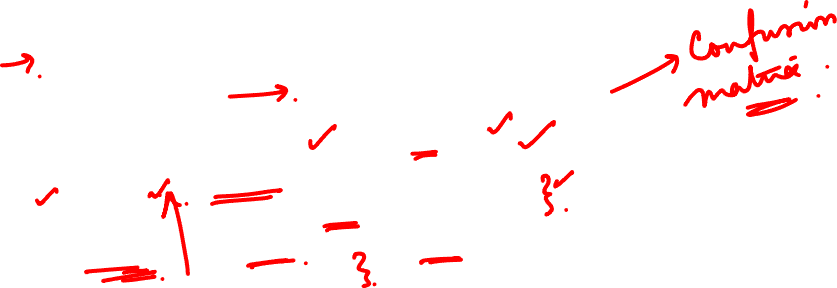 Confusion
matrix